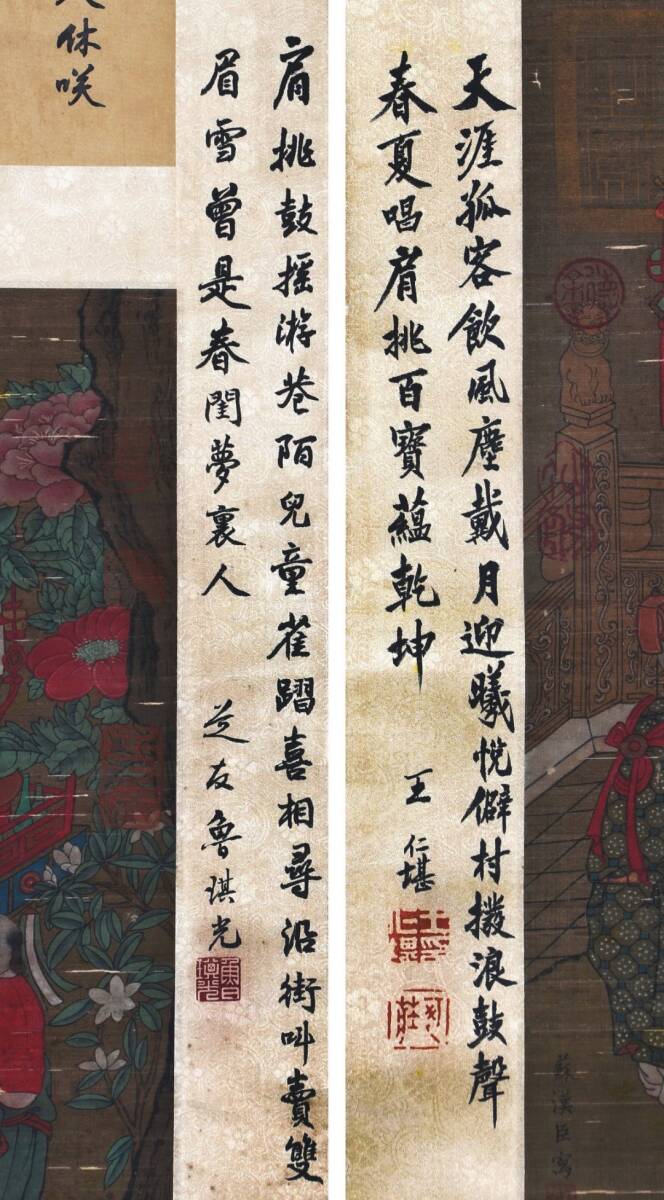 天涯孤客飲風塵戴月迎曦悅僻村撥浪鼓聲
春夏唱肩挑百寶蘊乾坤
王仁堪
蘇漢臣寫
肩挑鼓搖游巷陌兒童雀躍喜相尋沿街叫賣雙
眉雪曾是春閨夢裏人
芝友魯琪光
休咲